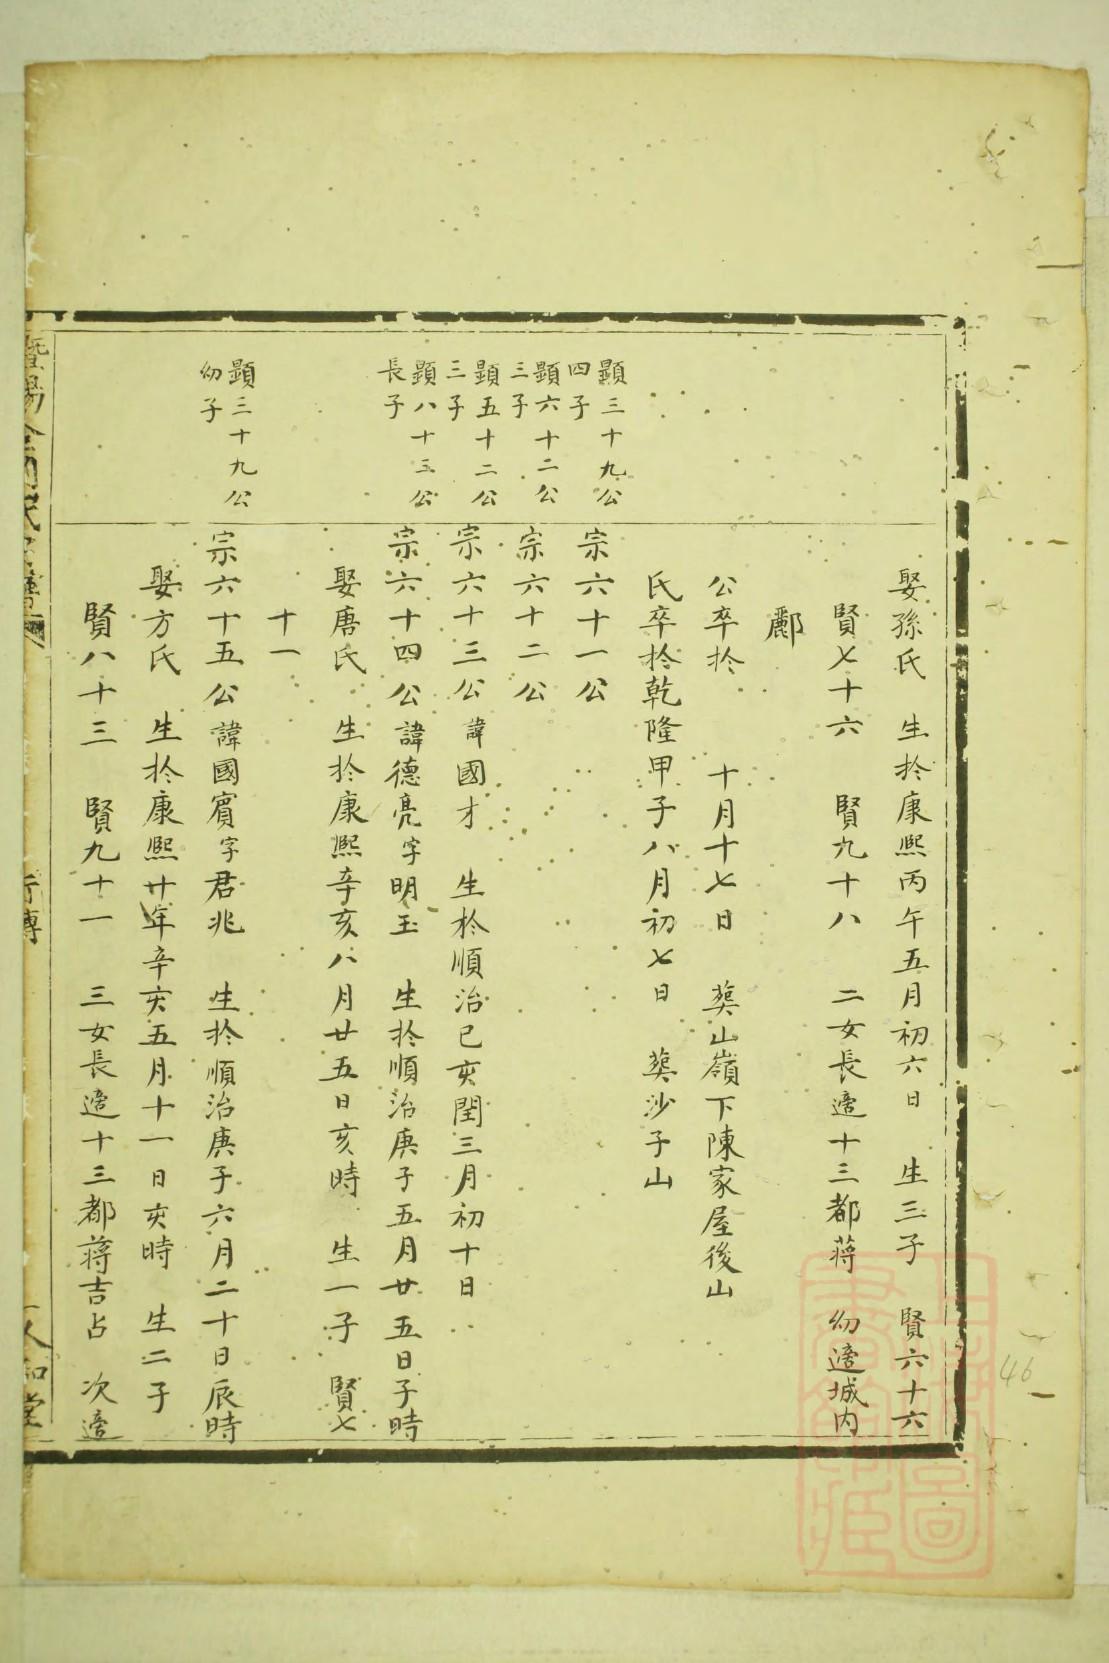 娶孫氏 生於康熙丙午五月初六日 生三子 賢六十六
賢七十六 賢九十八 二女長適十三都蔣 幼適城內
酈
公卒於 十月十七日 葬山嶺下陳家屋後山
氏卒於乾隆甲子八月初七日 葬沙子山
顯三十九公
四子
宗六十一公
顯六十二公
三子
宗六十二公
顯五十二公
三子
宗六十三公諱國才 生於順治己亥閏三月初十日
顯八十三公
長子
宗六十四公諱德亮字明玉 生於順治庚子五月廿五日子時
娶唐氏 生於康熙辛亥八月廿五日亥時 生一子 賢七
十一
顯三十九公
幼子
宗六十五公諱國賓字君兆 生於順治庚子六月二十日辰時
娶方氏 生於康熙廿年辛亥五月十一日亥時 生二子
賢八十三 賢九十一 三女長適十三都蔣吉占 次適
暨陽 行傳 人和堂
46